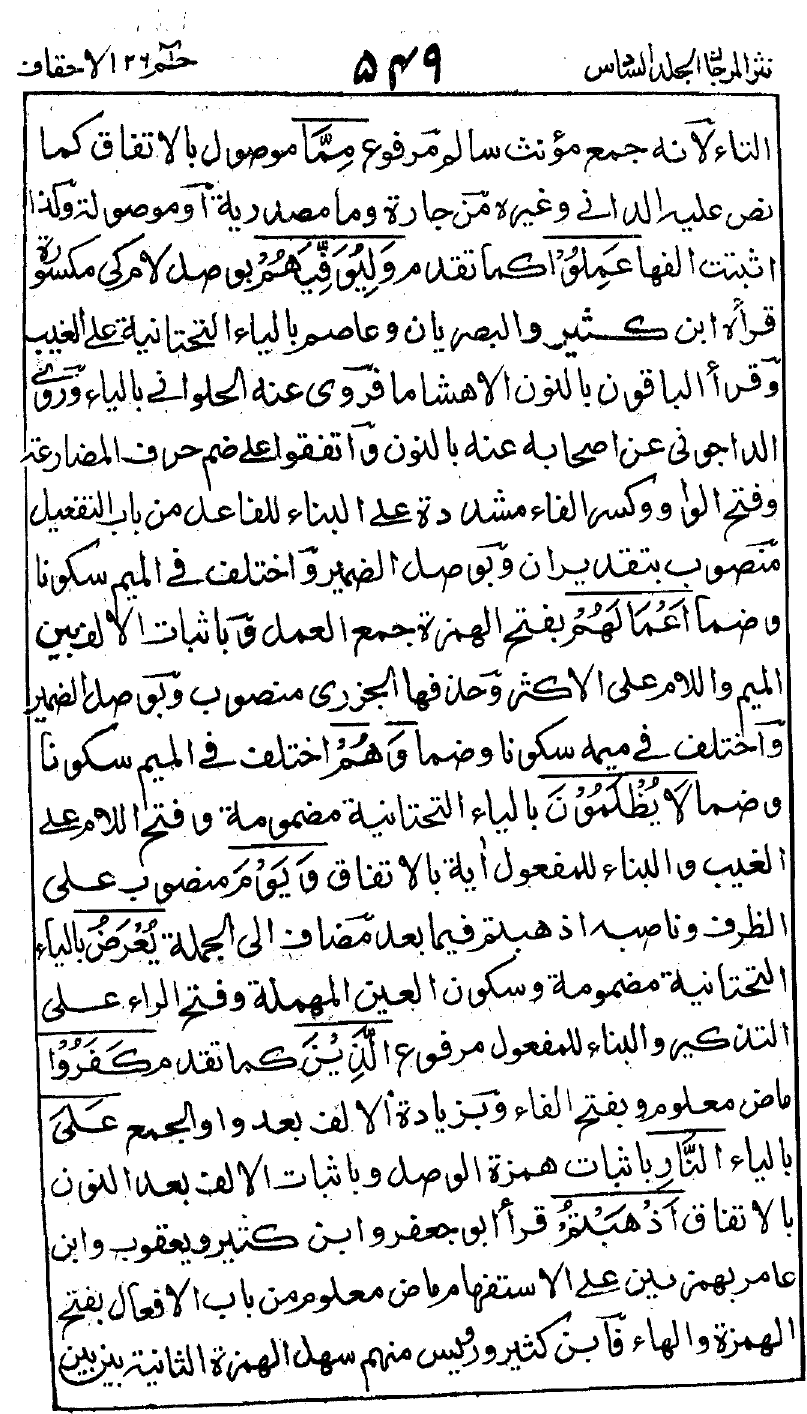 نثر المرجان المجلد السادس ۵۴۹ حٰم ۲۶ الاحقاف
التاء لانه جمع مؤنث سالم مرفوع مِمَّا موصول بالاتفاق كما
نص عليه الداني وغيره من جارة وما مصدرية او موصولة وكذا
اثبتت الفها عَمِلُوْا كما تقدم وَلِيُوَفِّيَهُمْ بوصل لام كي مكسورة
قرأه ابن كثير والبصريان وعاصم بالياء التحتانية على الغيب
وقرأ الباقون بالنون الا هشاما فروى عنه الحلواني بالياء وروى
الداجوني عن اصحابه عنه بالنون واتفقوا على ضم حرف المضارعة
وفتح الواو وكسر الفاء مشددة على البناء للفاعل من باب التفعيل
منصوب بتقدير ان وبوصل الضمير واختلف في الميم سكونا
وضما اَعْمَالَهُمْ بفتح الهمزة جمع العمل وباثبات الالف بين
الميم واللام على الاكثر وحذفها الجزرى منصوب وبوصل الضمير
واختلف في ميمه سكونا وضما وَهُمْ اختلف في الميم سكونا
وضما لَا يُظْلَمُوْنَ بالياء التحتانية مضمومة وفتح اللام على
الغيب والبناء للمفعول اية بالاتفاق وَيَوْمَ منصوب على
الظرف وناصبه اذهبتم فيما بعد مضاف الى الجملة يُعْرَضُ بالياء
التحتانية مضمومة وسكون العين المهملة وفتح الراء على
التذكير والبناء للمفعول مرفوع الَّذِيْنَ كما تقدم كَفَرُوْا
ماض معلوم وبفتح الفاء وبزيادة الالف بعد واو الجمع عَلَى
بالياء النَّارِ باثبات همزة الوصل وباثبات الالف بعد النون
بالاتفاق اَذْهَبْتُمْ قرأ ابو جعفر وابن كثير ويعقوب وابن
عامر بهمزتين على الاستفهام ماض معلوم من باب الافعال بفتح
الهمزة والهاء فابن كثير ورويس منهم سهل الهمزة الثانية بين بين